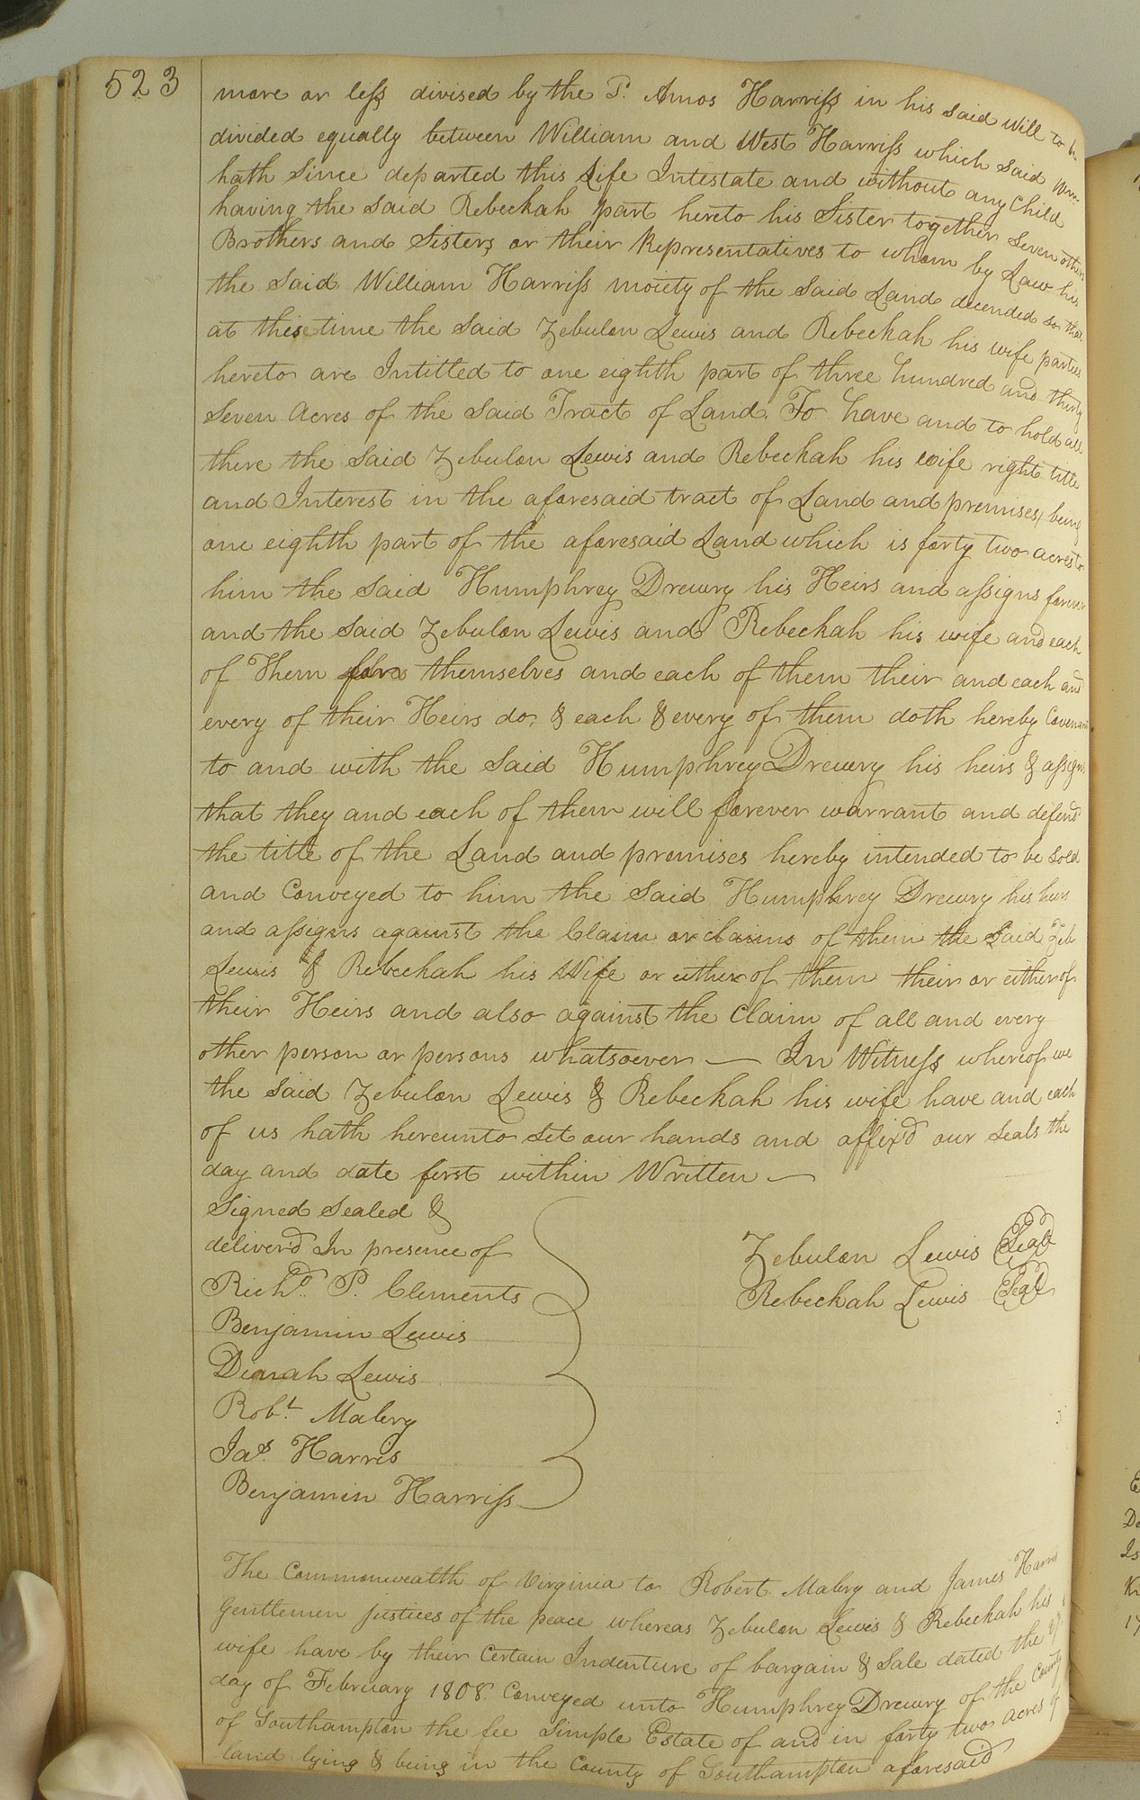 523
more or less divised by the S.d Amos Harriss in his said will to be
divided equally between William and West Harriss which said Wm
hath Since departed this Life Intestate and without any Child
having the said Rebeckah part hereto his Sister together Seven other
Brothers and Sisters or their Representatives to whom by Law his
the said William Harriss moiety of the said Land decended so that
at this time the said Zebulon Lewis and Rebeckah his wife parties
hereto are Intitled to one eighth part of three hundred and thirty
Seven Acres of the said Tract of Land. To have and to hold all
there the said Zebulon Lewis and Rebeckah his wife right title
and Interest in the aforesaid tract of Land and premises being
one eighth part of the aforesaid Land which is forty two acres to
him the said Humphrey Drewry his Heirs and assigns forever
and the said Zebulon Lewis and Rebeckah his wife and each
of Them for themselves and each of them their and each and
every of their Heirs do, & each & every of them doth hereby Covenant
to and with the said Humphrey Drewry his heirs & assigns
that they and each of them will forever warrant and defend
the title of the Land and premises hereby intended to be sold
and Conveyed to him the said Humphrey Drewry his heirs
and assigns against the Claim or claims of them the said Zeb
Lewis & Rebeckah his Wife or either of them their or either of
their Heirs and also against the Claim of all and every
other person or persons whatsoever — In Witness whereof we
the said Zebulon Lewis & Rebeckah his wife have and each
of us hath hereunto set our hands and affix'd our seals the
day and date first within Written —
Signed Sealed &
deliver'd In presence of
Zebulon Lewis Seal
Rich.d P. Clements
Rebeckah Lewis Seal
Benjamin Lewis
Dianah Lewis
Rob.t Mabry
Ja.s Harris
Benjamin Harriss
The Commonwealth of Virginia to Robert Mabry and James Harris
Gentlemen Justices of the peace whereas Zebulon Lewis & Rebeckah his
wife have by their Certain Indenture of bargain & Sale dated the
day of February 1808 Conveyed unto Humphrey Drewry of the County
of Southampton the fee Simple Estate of and in forty two acres of
land lying & being in the County of Southampton aforesaid